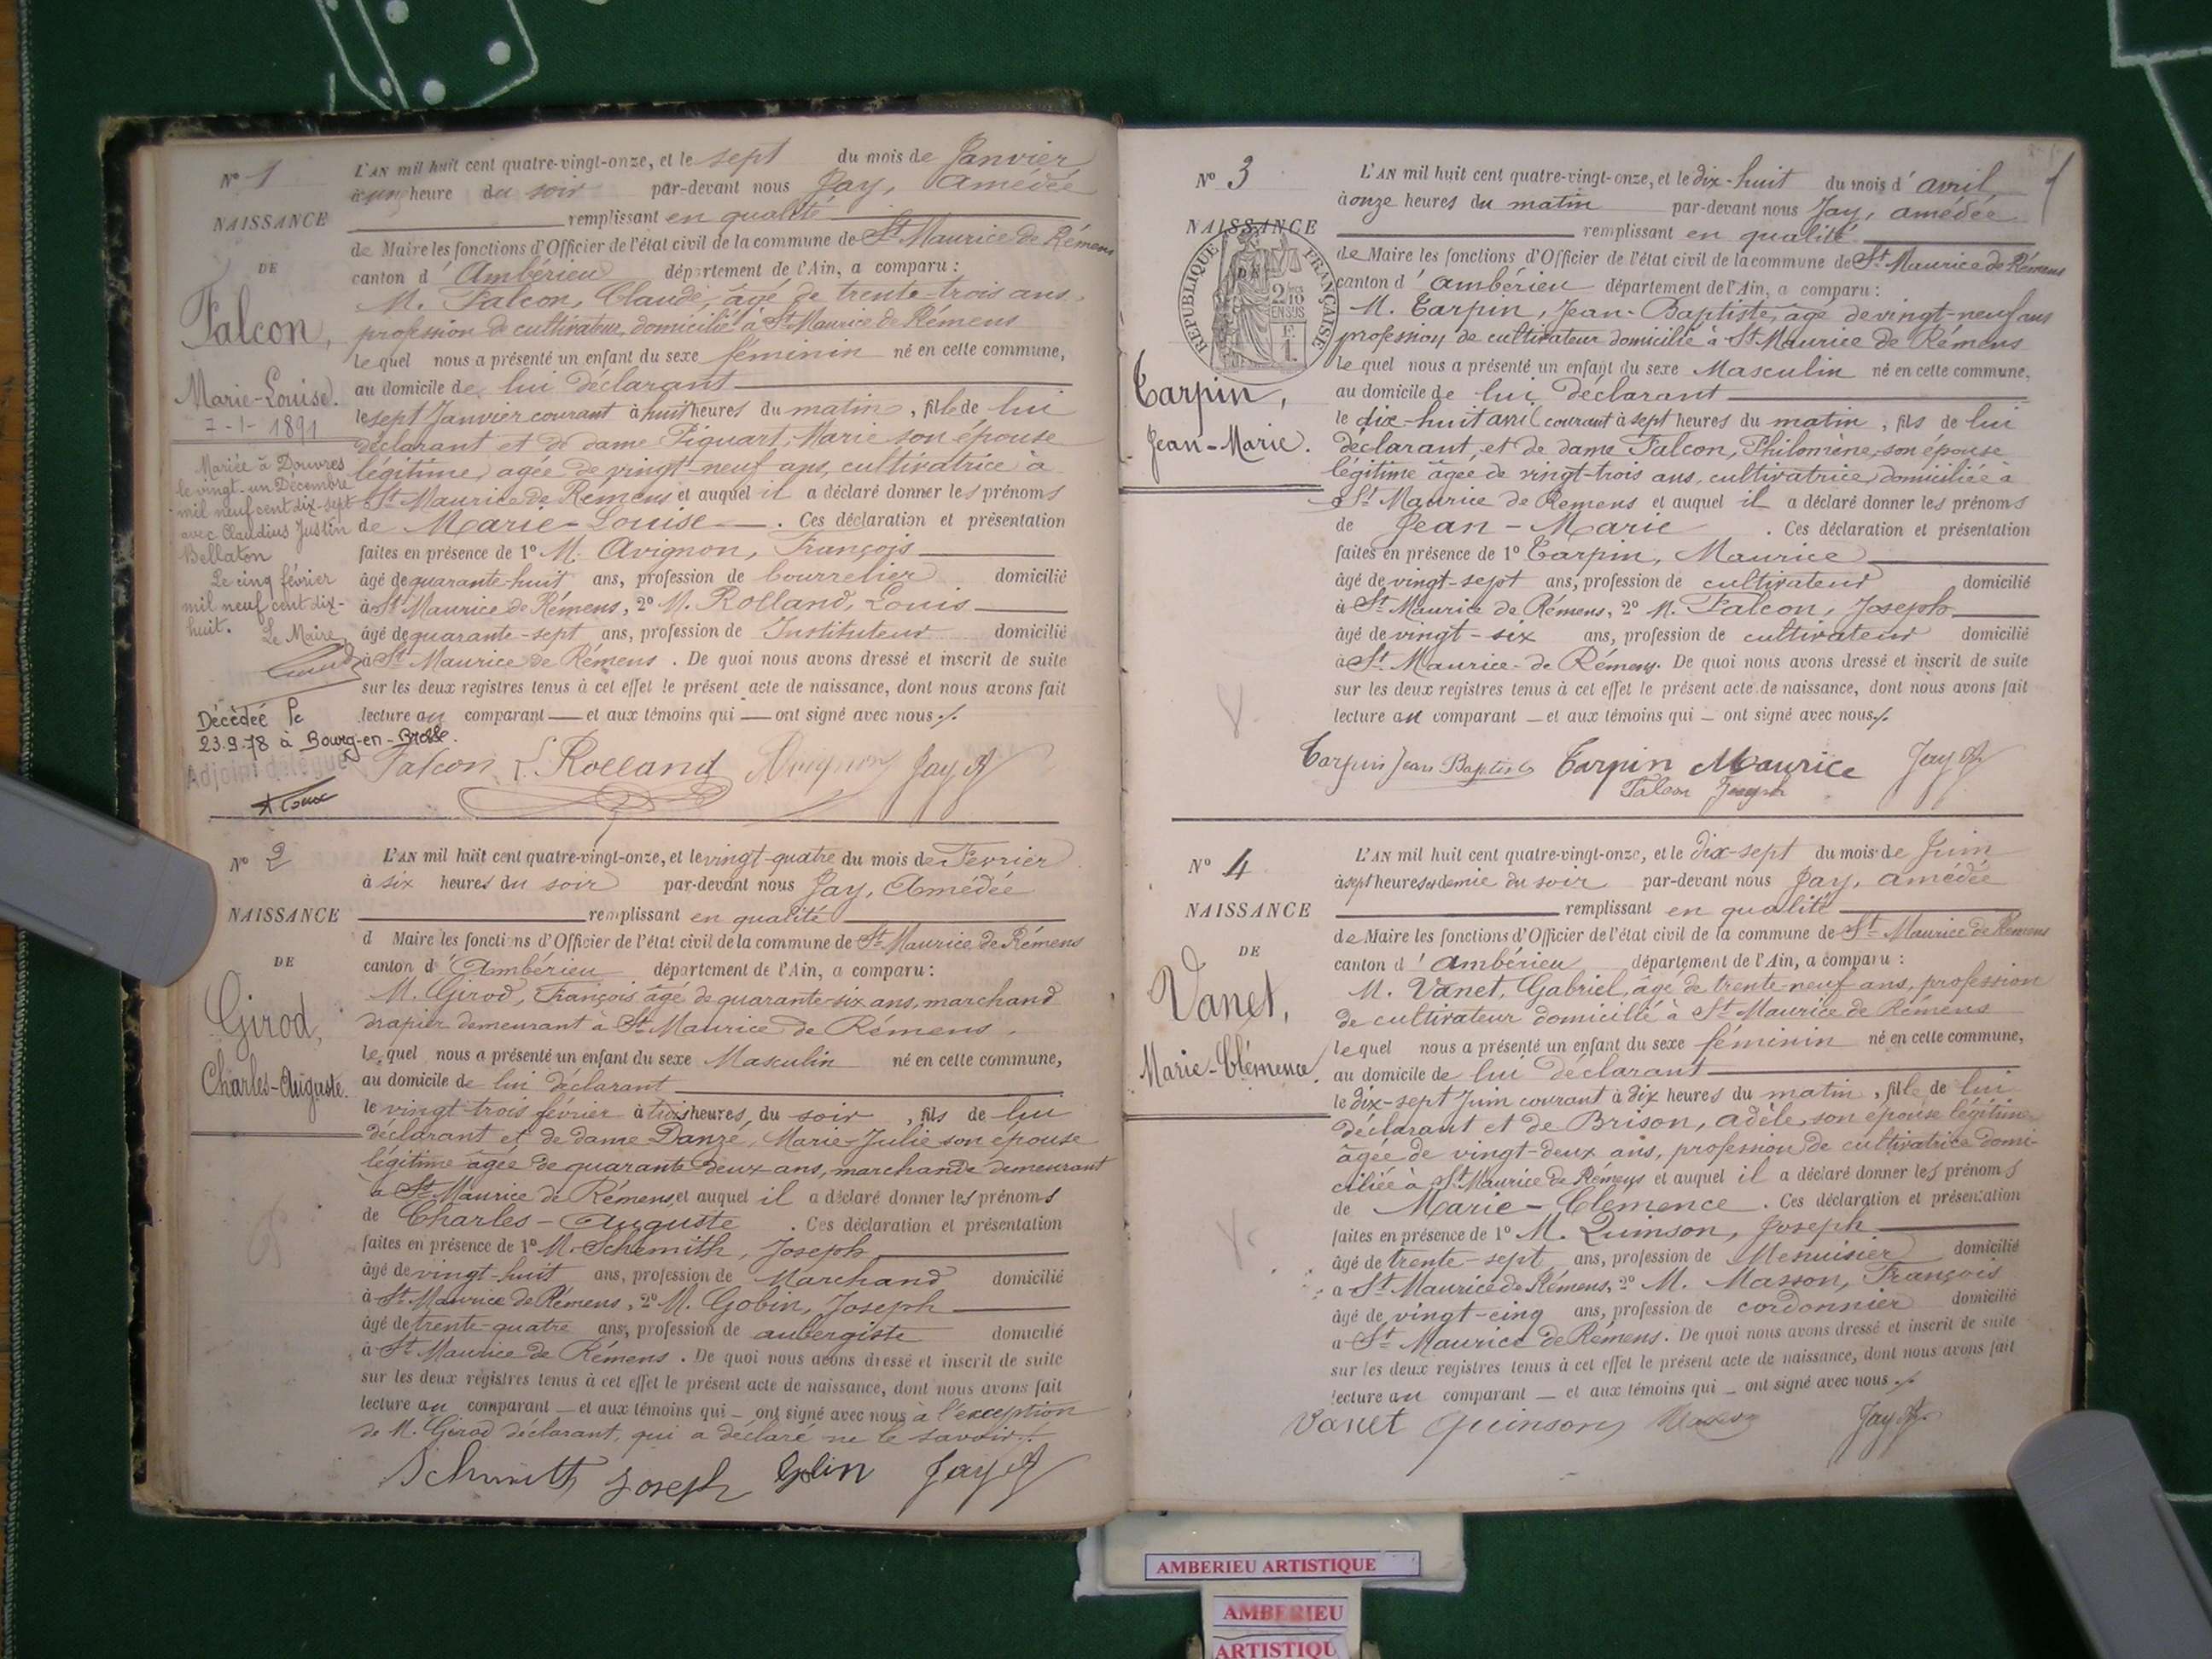 N° 1
NAISSANCE
DE
Falcon,
Marie-Louise.
7-1-1891
Mariée à Douvres
le vingt-un Décembre
mil neuf cent dix-sept
avec Claudius Justin
Bellaton
Le cinq février
mil neuf cent dix-
huit. Le Maire
Décédée le
23.9.78 à Bourg-en-Bresse.
Adjoint délégué
L'AN mil huit cent quatre-vingt-onze, et le sept du mois de Janvier
à une heure du soir par-devant nous Jay, Amédée
remplissant en qualité
de Maire les fonctions d'Officier de l'état civil de la commune de St Maurice de Rémens
canton d'Ambérieu département de l'Ain, a comparu :
M. Falcon, Claude, âgé de trente-trois ans,
profession de cultivateur domicilié à St Maurice de Rémens
le quel nous a présenté un enfant du sexe féminin né en cette commune,
au domicile de lui déclarant
le sept Janvier courant à huit heures du matin, fille de lui
déclarant et de dame Piquart, Marie son épouse
légitime, agée de vingt-neuf ans, cultivatrice à
St Maurice de Remens et auquel il a déclaré donner les prénoms
de Marie-Louise. Ces déclaration et présentation
faites en présence de 1° M. Avignon, François
âgé de quarante-huit ans, profession de bourrelier domicilié
à St Maurice de Rémens, 2° M. Rolland, Louis
âgé de quarante-sept ans, profession de Instituteur domicilié
à St Maurice de Rémens. De quoi nous avons dressé et inscrit de suite
sur les deux registres tenus à cet effet le présent acte de naissance, dont nous avons fait
lecture au comparant — et aux témoins qui — ont signé avec nous ./.
Falcon L Rolland Avignon Jay A
N° 2
NAISSANCE
DE
Girod,
Charles-Auguste.
L'AN mil huit cent quatre-vingt-onze, et le vingt-quatre du mois de Février
à six heures du soir par-devant nous Jay, Amédée
remplissant en qualité
d Maire les fonctions d'Officier de l'état civil de la commune de St Maurice de Rémens
canton d'Ambérieu département de l'Ain, a comparu :
M. Girod, François âgé de quarante-six ans, marchand
drapier demeurant à St Maurice de Rémens,
le quel nous a présenté un enfant du sexe Masculin né en cette commune,
au domicile de lui déclarant
le vingt trois février à trois heures du soir, fils de lui
déclarant et de dame Danzé, Marie-Julie son épouse
légitime âgée de quarante-deux ans, marchande demeurant
à St Maurice de Rémens, et auquel il a déclaré donner les prénoms
de Charles-Auguste. Ces déclaration et présentation
faites en présence de 1° M. Schemith, Joseph
âgé de vingt-huit ans, profession de Marchand domicilié
à St Maurice de Rémens, 2° M. Gobin, Joseph
âgé de trente-quatre ans, profession de aubergiste domicilié
à St Maurice de Rémens. De quoi nous avons dressé et inscrit de suite
sur les deux registres tenus à cet effet le présent acte de naissance, dont nous avons fait
lecture au comparant — et aux témoins qui — ont signé avec nous à l'exception
de M. Girod déclarant, qui a déclaré ne le savoir ./.
Schmith Joseph Gobin Jay A
N° 3
NAISSANCE
RÉPUBLIQUE FRANÇAISE
2/10 EN SUS
F. 1.
Carpin,
Jean-Marie.
L'AN mil huit cent quatre-vingt-onze, et le dix-huit du mois d'avril
à onze heures du matin par-devant nous Jay, amédée
remplissant en qualité
de Maire les fonctions d'Officier de l'état civil de la commune de St Maurice de Rémens
canton d'ambérieu département de l'Ain, a comparu :
M. Carpin, Jean-Baptiste, âgé de vingt-neuf ans
profession de cultivateur domicilié à St Maurice de Rémens
le quel nous a présenté un enfant du sexe Masculin né en cette commune,
au domicile de lui déclarant
le dix-huit avril courant à sept heures du matin, fils de lui
déclarant, et de dame Falcon, Philomène, son épouse
légitime âgée de vingt-trois ans, cultivatrice domiciliée à
St Maurice de Remens et auquel il a déclaré donner les prénoms
de Jean-Marie. Ces déclaration et présentation
faites en présence de 1° Carpin, Maurice
âgé de vingt-sept ans, profession de cultivateur domicilié
à St Maurice de Rémens, 2° M. Falcon, Joseph
âgé de vingt-six ans, profession de cultivateur domicilié
à St Maurice-de Rémens. De quoi nous avons dressé et inscrit de suite
sur les deux registres tenus à cet effet le présent acte de naissance, dont nous avons fait
lecture au comparant — et aux témoins qui — ont signé avec nous ./.
Carpin Jean Baptiste Carpin Maurice Jay A
Falcon Joseph
N° 4
NAISSANCE
DE
Vanet,
Marie-Clémence.
L'AN mil huit cent quatre-vingt-onze, et le dix-sept du mois de Juin
à sept heures et demie du soir par-devant nous Jay, amédée
remplissant en qualité
de Maire les fonctions d'Officier de l'état civil de la commune de St Maurice de Remens
canton d'ambérieu département de l'Ain, a comparu :
M. Vanet, Gabriel, âgé de trente-neuf ans, profession
de cultivateur domicilié à St Maurice de Rémens
le quel nous a présenté un enfant du sexe féminin né en cette commune,
au domicile de lui déclarant
le dix-sept Juin courant à dix heures du matin, fille de lui
déclarant et de Brison, adèle, son épouse légitime
âgée de vingt-deux ans, profession de cultivatrice domi-
ciliée à St Maurice de Rémens et auquel il a déclaré donner les prénoms
de Marie-Clemence. Ces déclaration et présentation
faites en présence de 1° M. Quinson, Joseph
âgé de trente-sept ans, profession de Menuisier domicilié
a St Maurice de Rémens, 2° M. Masson, François
âgé de vingt-cinq ans, profession de cordonnier domicilié
a St Maurice de Rémens. De quoi nous avons dressé et inscrit de suite
sur les deux registres tenus à cet effet le présent acte de naissance, dont nous avons fait
lecture au comparant — et aux témoins qui — ont signé avec nous ./.
Vanet Quinson Masson Jay A.
AMBERIEU ARTISTIQUE
AMBERIEU
ARTISTIQU